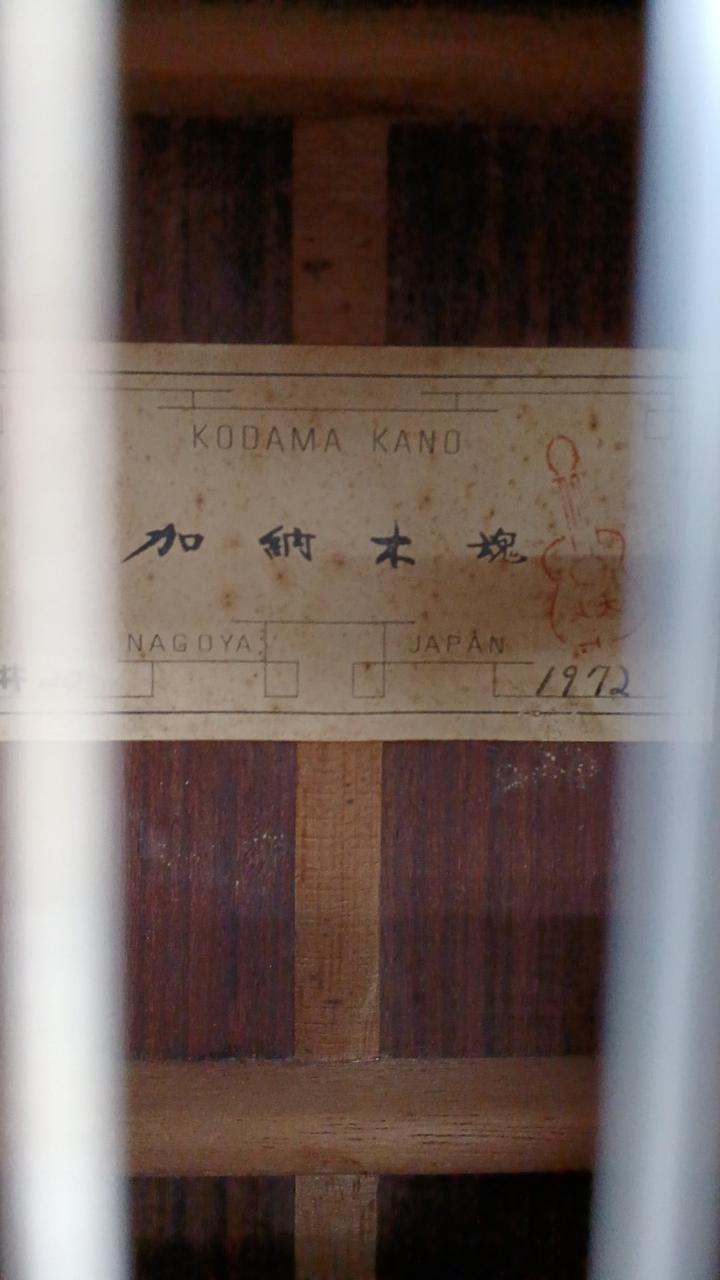 KODAMA KANO
加納木塊
NAGOYA JAPAN
1972